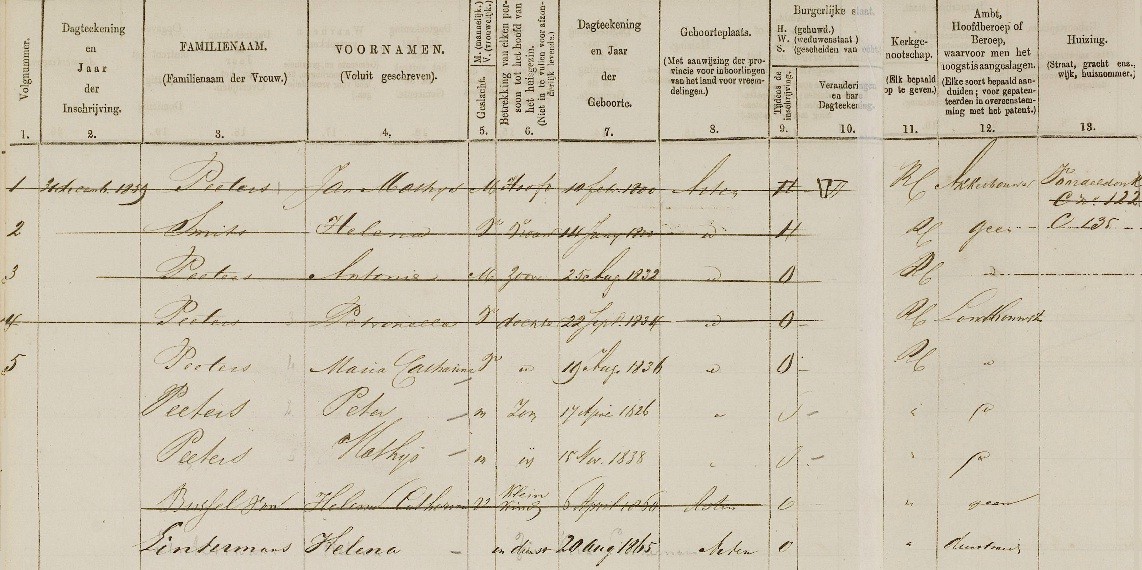 Volgnummer.
Dagteekening en Jaar der Inschrijving.
FAMILIENAAM.
(Familienaam der Vrouw.)
VOORNAMEN.
(Voluit geschreven.)
Geslacht. M. (mannelijk.) V. (vrouwelijk.)
Betrekking van elken persoon tot het hoofd van het huisgezin. (Niet in te vullen voor afzonderlijk levende.)
Dagteekening en Jaar der Geboorte.
Geboorteplaats.
(Met aanwijzing der provincie voor inboorlingen of van het land voor vreemdelingen.)
Burgerlijke staat.
H. (gehuwd.)
W. (weduwenstaat)
S. (gescheiden van echt
Tijdens de inschrijving.
Veranderingen en har Dagteekening
Kerkgenootschap.
(Elk bepaald op te geven.)
Ambt, Hoofdberoep of Beroep, waarvoor men het hoogst is aangeslagen.
(Elke soort bepaald aanduiden; voor gepatenteerden in overeenstemming met het patent.)
Huizing.
(Straat, gracht enz., wijk, huisnommer.)
1. 2. 3. 4. 5. 6. 7. 8. 9. 10. 11. 12. 13.
1 Peeters Jan Mathys M Hoofd Asten H W RC Akkerbouwer
C No. 122
2 Smits Helena V Vrouw d H RC geen C 135
3 Peeters Antonie M Zoon 25 Aug 1832 d O RC d
4 Peeters Petronella V dochter 22 Sept. 1834 d O RC Landbouwster
5 Peeters Maria Catharina V d 19 Aug. 1836 d O RC d
Peeters Peter m Zon 17 Apri 1826 " "
Peeters Mathys m 15 Nov. 1838 " "
Bussel van Helena Catharina V Klein kind 6 April Asten O " geen
Lintermans Helena dienst 20 Aug 1865 Asten O " dienstmeid